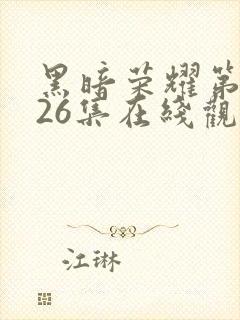 黑暗荣耀第
26集在线觀
江琳